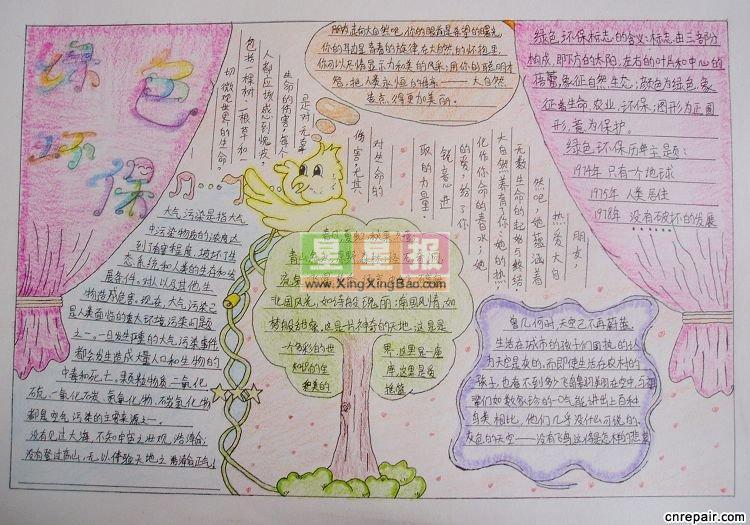 绿色
环保
大气污染是指大气
中污染物质的浓度达
到了有害程度,破坏了生
态系统和人类的生存和发
展条件,对人以及其他生
物造成危害。现在,大气污染已
是人类面临的重大环境污染问题
之一。一旦发生严重的大气污染事件
都会造成大量人口和生物的
中毒和死亡。颗粒物质、二氧化
硫、一氧化碳、氮氧化物、碳氢化物
都是空气污染的主要来源之一。
没有见过大海,不知宇宙之壮观、浩渺;
没有登过高山,无以体验天地之
朋友,走向大自然吧,你的眼前是希望的曙光,
你的耳边是青春的旋律,在大自然的怀抱里,
你可以尽情显示力和美的风采;用你的聪明才
智,把人类永恒的母亲——大自然
装点得更加美丽。
朋友,
热爱大自
然吧,她蕴涵着
无数生命的起始与终结,
大自然养育了你,她的热血
化作你生命的春水;她
的爱,给了你
锐意进
取的力量。
对生命的
伤害,尤其
是对无辜
生命的伤害,每个
人都应该感到愧疚,
包括一棵树、一根草和一
切微观世界的生命。
绿色环保标志的含义:标志由三部分
构成,即下方的太阳、左右的叶片和中心的
蓓蕾,象征自然生态;颜色为绿色,象
征着生命、农业、环保;图形为正圆
形,意为保护。
绿色环保历年主题:
1974年 只有一个地球
1975年 人类居住
1978年 没有破坏的发展
星星报
www.XingXingBao.com
北国风光,如诗般瑰丽;南国风情,如
梦般甜蜜。这是片神奇的天地,这里是
一个多彩的世界,这里是一座
知识的宝库,这里是爱
和美的摇篮
曾几何时,天空已不再蔚蓝,
生活在城市的孩子们固执的认
为天空是灰的,而即使生活在农村的
孩子,也看不到多少飞鸟闪翔在空中,与祖
辈们如数家珍的一口气能讲出上百种
鸟类相比,他们几乎没什么可说的,
灰色的天空——没有飞鸟,这将是怎样的悲哀
cnrepair.com